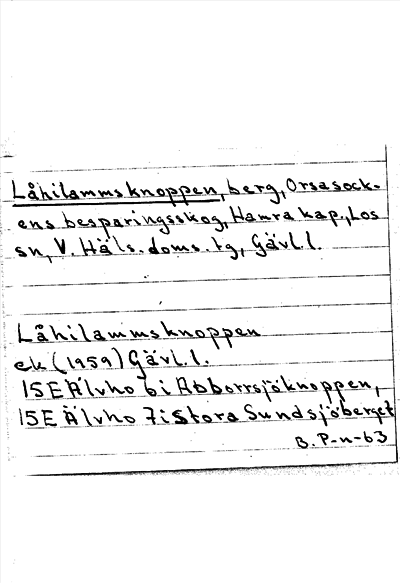 Låhilammsknoppen, berg, Orsasock-
ens besparingsskog, Hamra kap., Los
sn, V. Häls. doms. tg, Gävl. l.
Låhilammsknoppen
ek (1959) Gävl. l.
15E Älvho 6i Abborrsjöknoppen,
15E Älvho 7i Stora Sundsjöberget
B. P-n-63